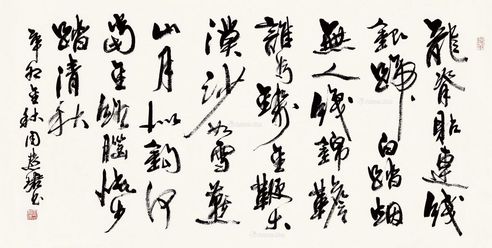 龍脊貼連錢
銀蹄白踏烟
無人織錦韂
誰為鑄金鞭大
漠沙如雪燕
山月似鉤何
當金絡腦快走
踏清秋
辛卯金秋周慧珺书